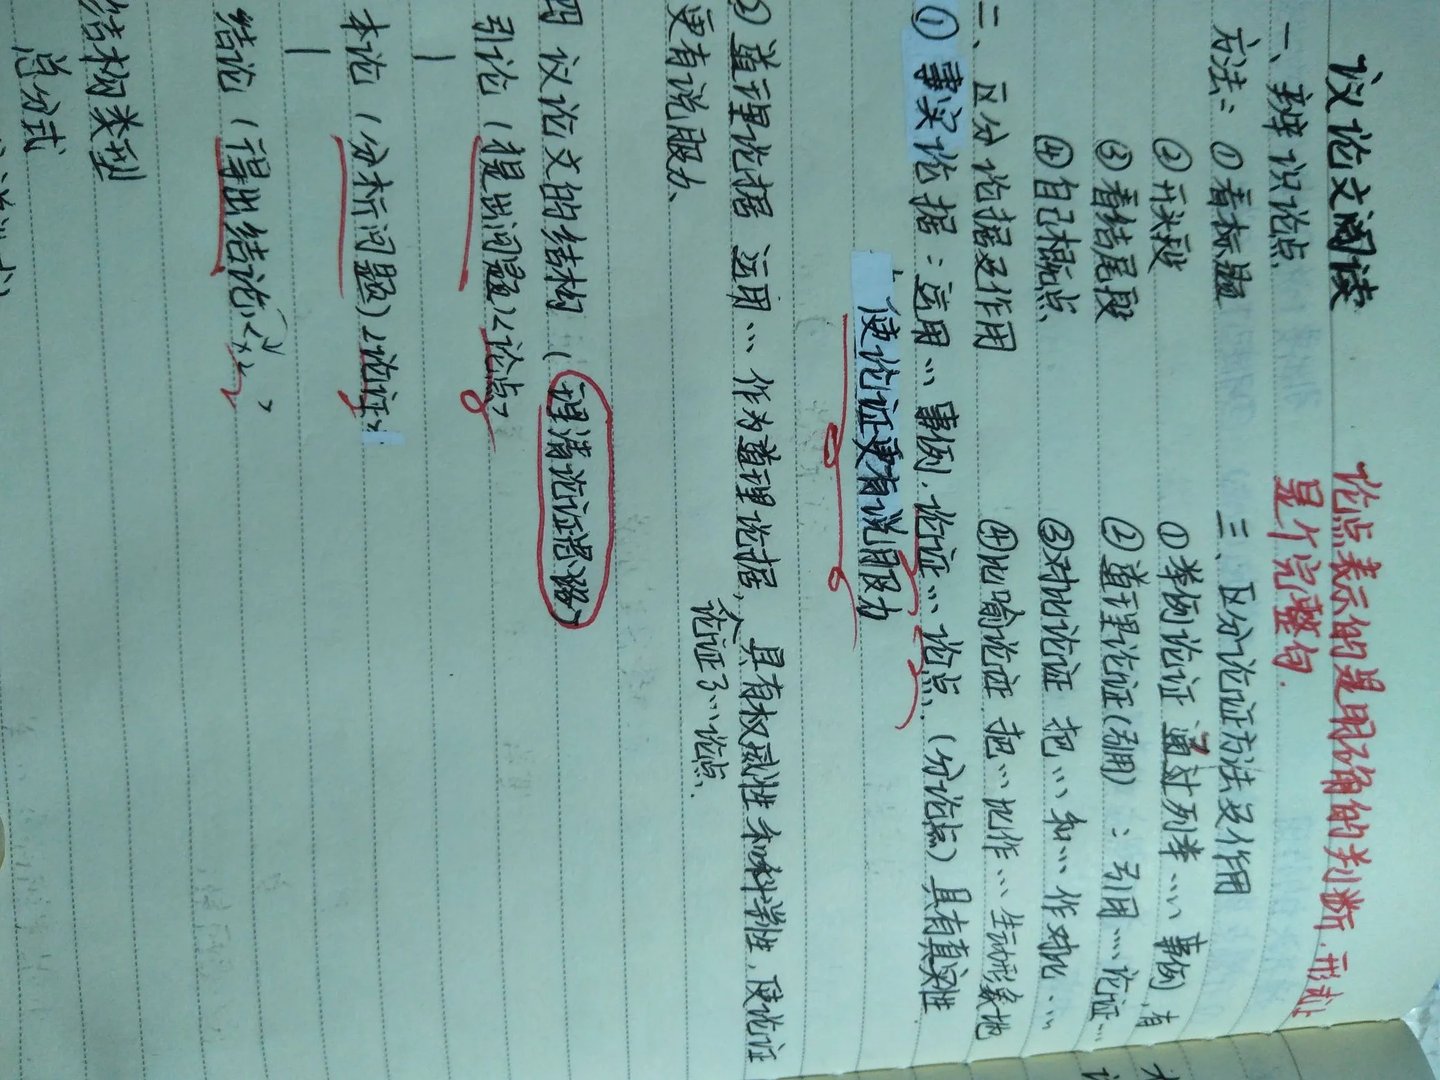 议论文阅读
论点表示的是明确的判断，形式上
是个完整句.
一、辨识论点
方法：①看标题
②开头段
③看结尾段
④自己概括
三、区分论证方法及作用
①举例论证 通过列举…… 事例，有
②道理论证(引用)：引用……论证…
③对比论证 把…和…作对比……
④比喻论证 把…比作…生动形象地
二、区分论据及作用
①事实论据：运用…事例，论证…论点.(分论点)具有真实性
使论证更有说服力
②道理论据 运用…作为道理论据，具有权威性和科学性，使论证
论证了…论点.
更有说服力、
四 议论文的结构（理清论证思路）
引论（提出问题）<论点>
本论（分析问题）<论证>
结论（得出结论）
结构类型
总分式